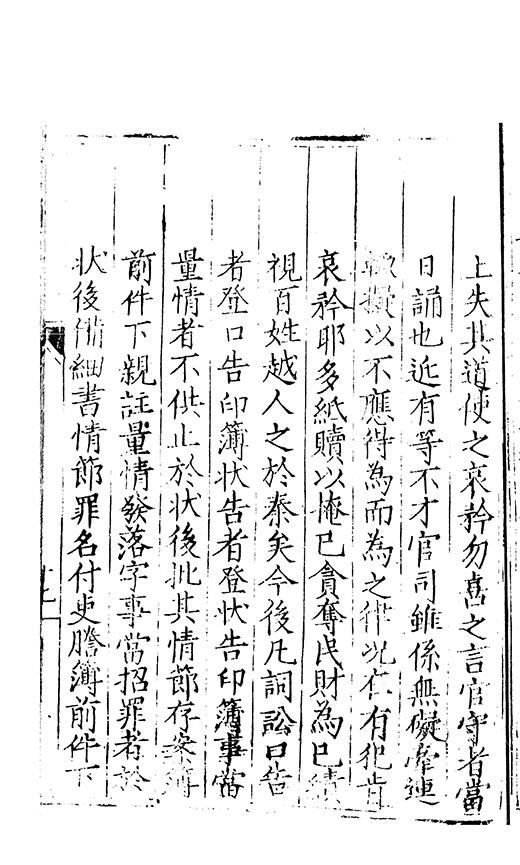 上失其道使之哀矜勿喜之言官守者當
日誦也近有等不才官司雖係無礙牽連
擬以不應得為而為之律況仁有犯肯
哀矜耶多紙贖以掩已貪奪民財為已績
視百姓越人之於秦矣今後凡詞訟口告
者登口告印簿狀告者登狀告印簿事當
量情者不供止於狀後批其情節存案簿
前件下親註量情發落字事當招罪者於
狀後備細書情節罪名付吏謄簿前件下